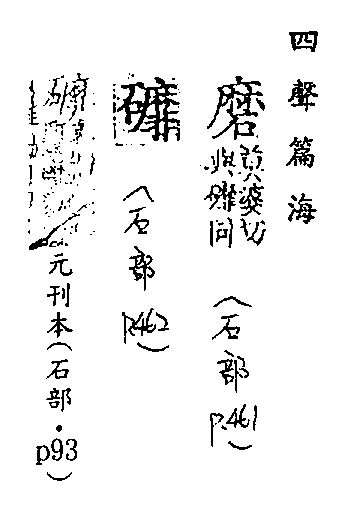 四聲篇海
磨
莫婆切
與䃺同
(石部 p.461)
䃺
(石部 P.462)
元刊本(石部·p93)